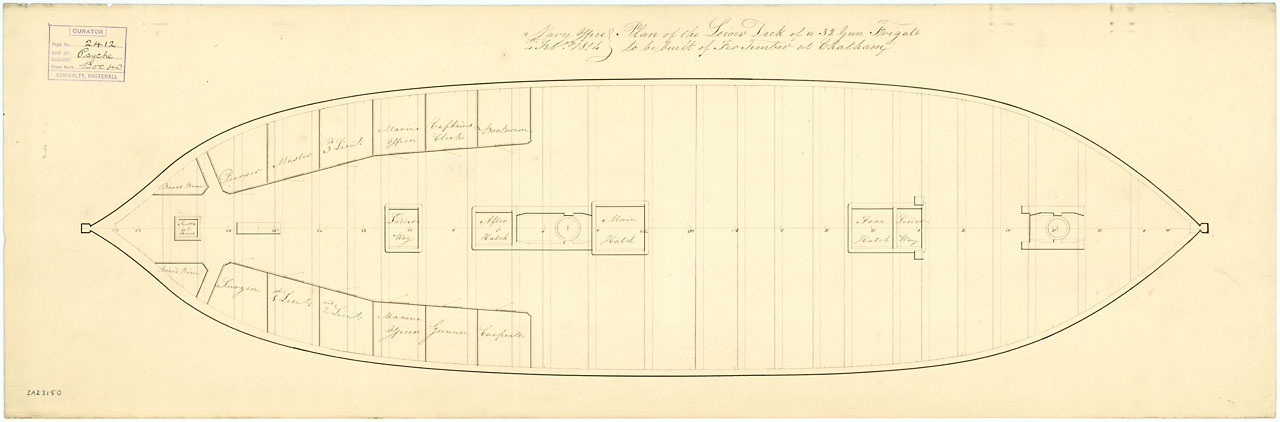 CURATOR
2412
Psyche
Box
ADMIRALTY, WHITEHALL
Navy Office
Feby 1814
Plan of the Lower Deck of a 32 Gun Frigate
to be built of Fir Timber at Chatham
Bread Room
Purser
Master
3 Lieut.
Marine
Officer
Captains
Clerk
Boatswain
Ladder
Way
After
Hatch
Main
Hatch
Fore
Hatch
Ladder
Way
Bread Room
Surgeon
1st Lieut.
2nd Lieut.
Marine
Officer
Gunner
Carpenter
ZAZ3150